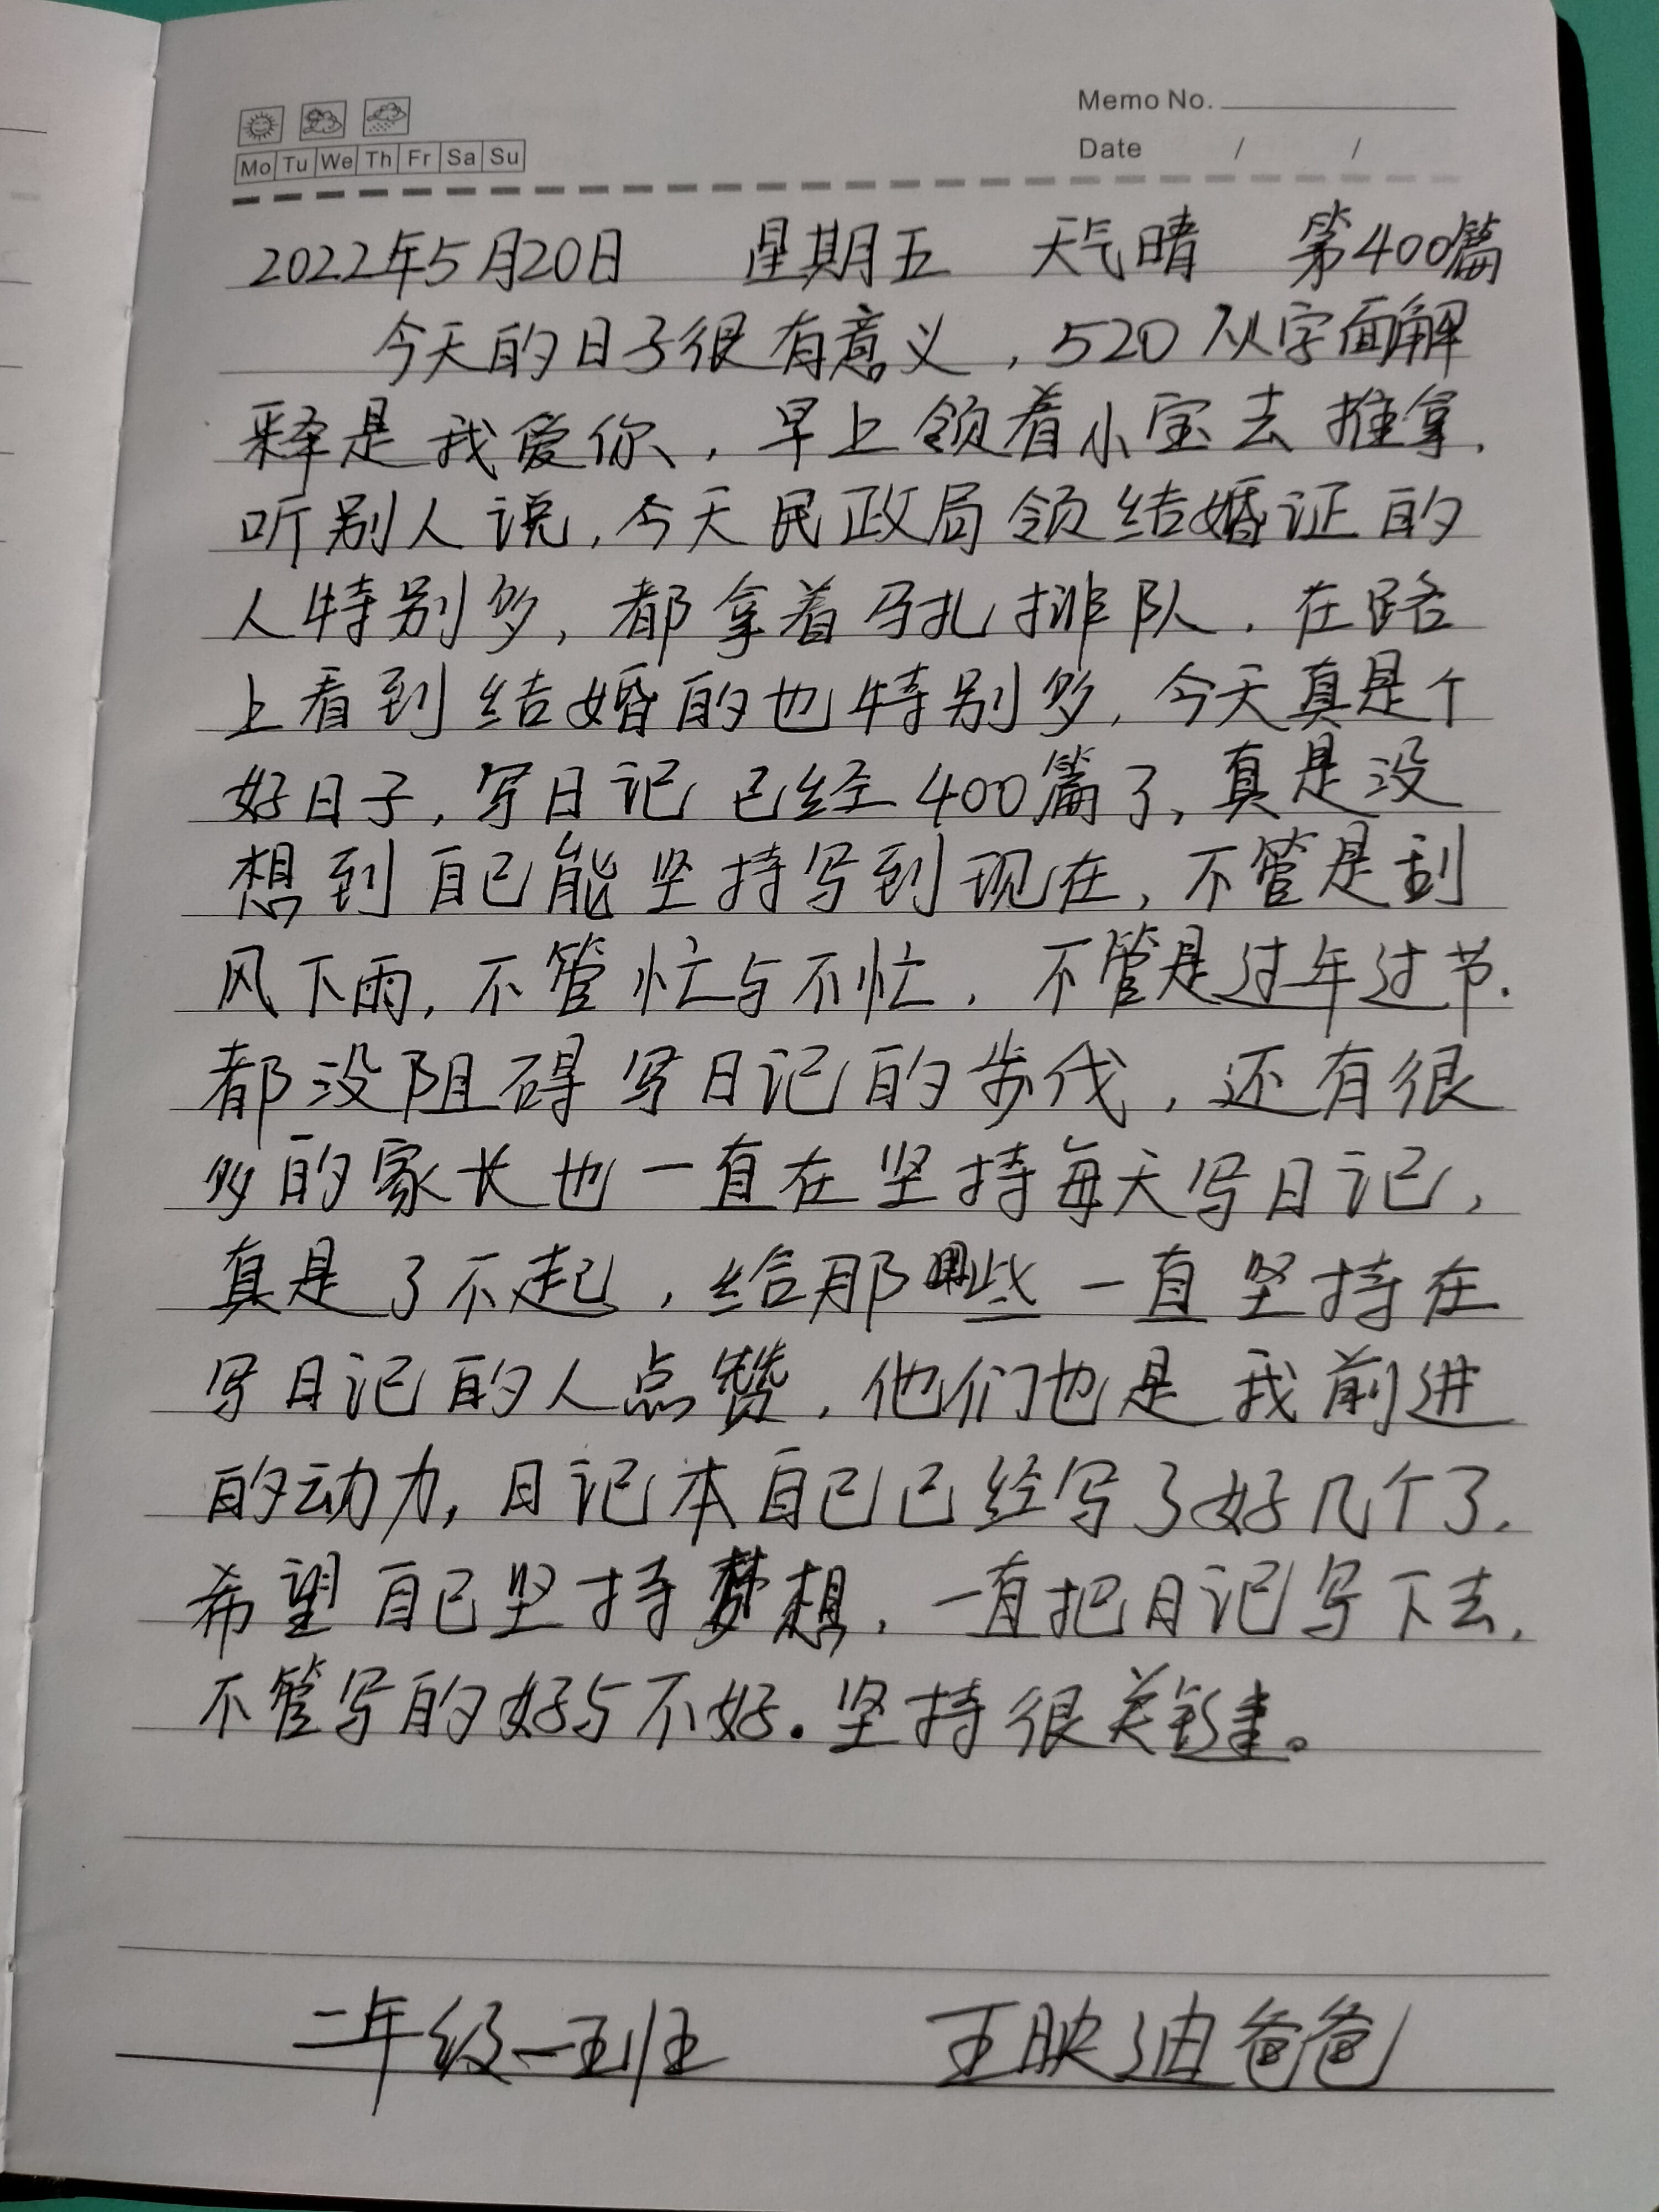 Memo No.
Mo Tu We Th Fr Sa Su
Date / /
2022年5月20日 星期五 天气晴 第400篇
今天的日子很有意义，520从字面解
释是我爱你，早上领着小宝去推拿.
听别人说,今天民政局领结婚证的
人特别多,都拿着马扎排队.在路
上看到结婚的也特别多,今天真是个
好日子,写日记已经400篇了,真是没
想到自己能坚持写到现在,不管是刮
风下雨,不管忙与不忙.不管是过年过节.
都没阻碍写日记的步伐,还有很
多的家长也一直在坚持每天写日记,
真是了不起,给那些一直坚持在
写日记的人点赞,他们也是我前进
的动力,日记本自己已经写了好几个了.
希望自己坚持梦想.一直把日记写下去.
不管写的好与不好.坚持很关键。
二年级一班 王映迪爸爸